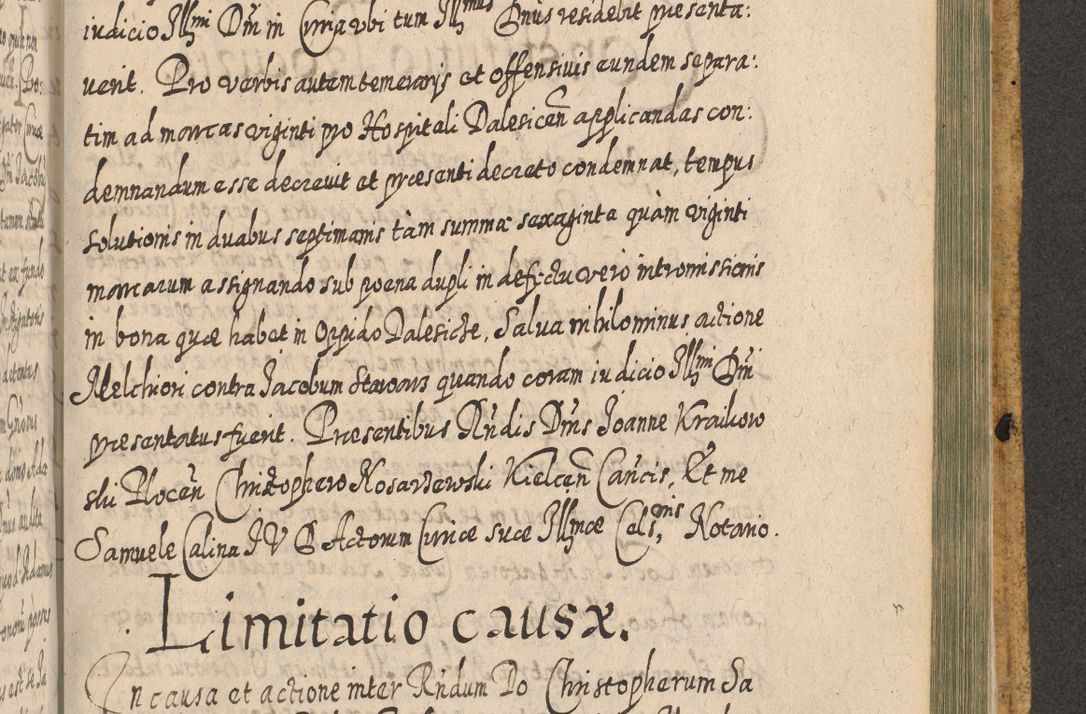 iudicio Illmi Dni in Curia vbi tum Illmus Dnus residebit præsenta:
uerit. Pro verbis autem temerarijs et offensiuis eundem separa:
tim ad marcas viginti pro Hospitali Dalesicen applicandas con:
demnandum esse decreuit et præsenti decreto condemnat, tempus
solutionis in duabus septimanis tàm summæ sexaginta quàm viginti
marcarum assignando sub poena dupli in defectu vero intromissionis
in bona quæ habet in Oppido Dalesicze, Salua nihilominus actione
Melchiori contra Jacobum quando coram iudicio Illmi Dni
præsentatus fuerit. Præsentibus Rndis Dnis Joanne Kraikow
ski Plocen Christophero Kosarzewski Kielcen Cancis, Et me
Samuele Calina I V D Actorum Curiæ suæ Illmæ Cels, nis Notario.
Limitatio causæ.
In causa et actione inter Rndum Do Christopherum Sa